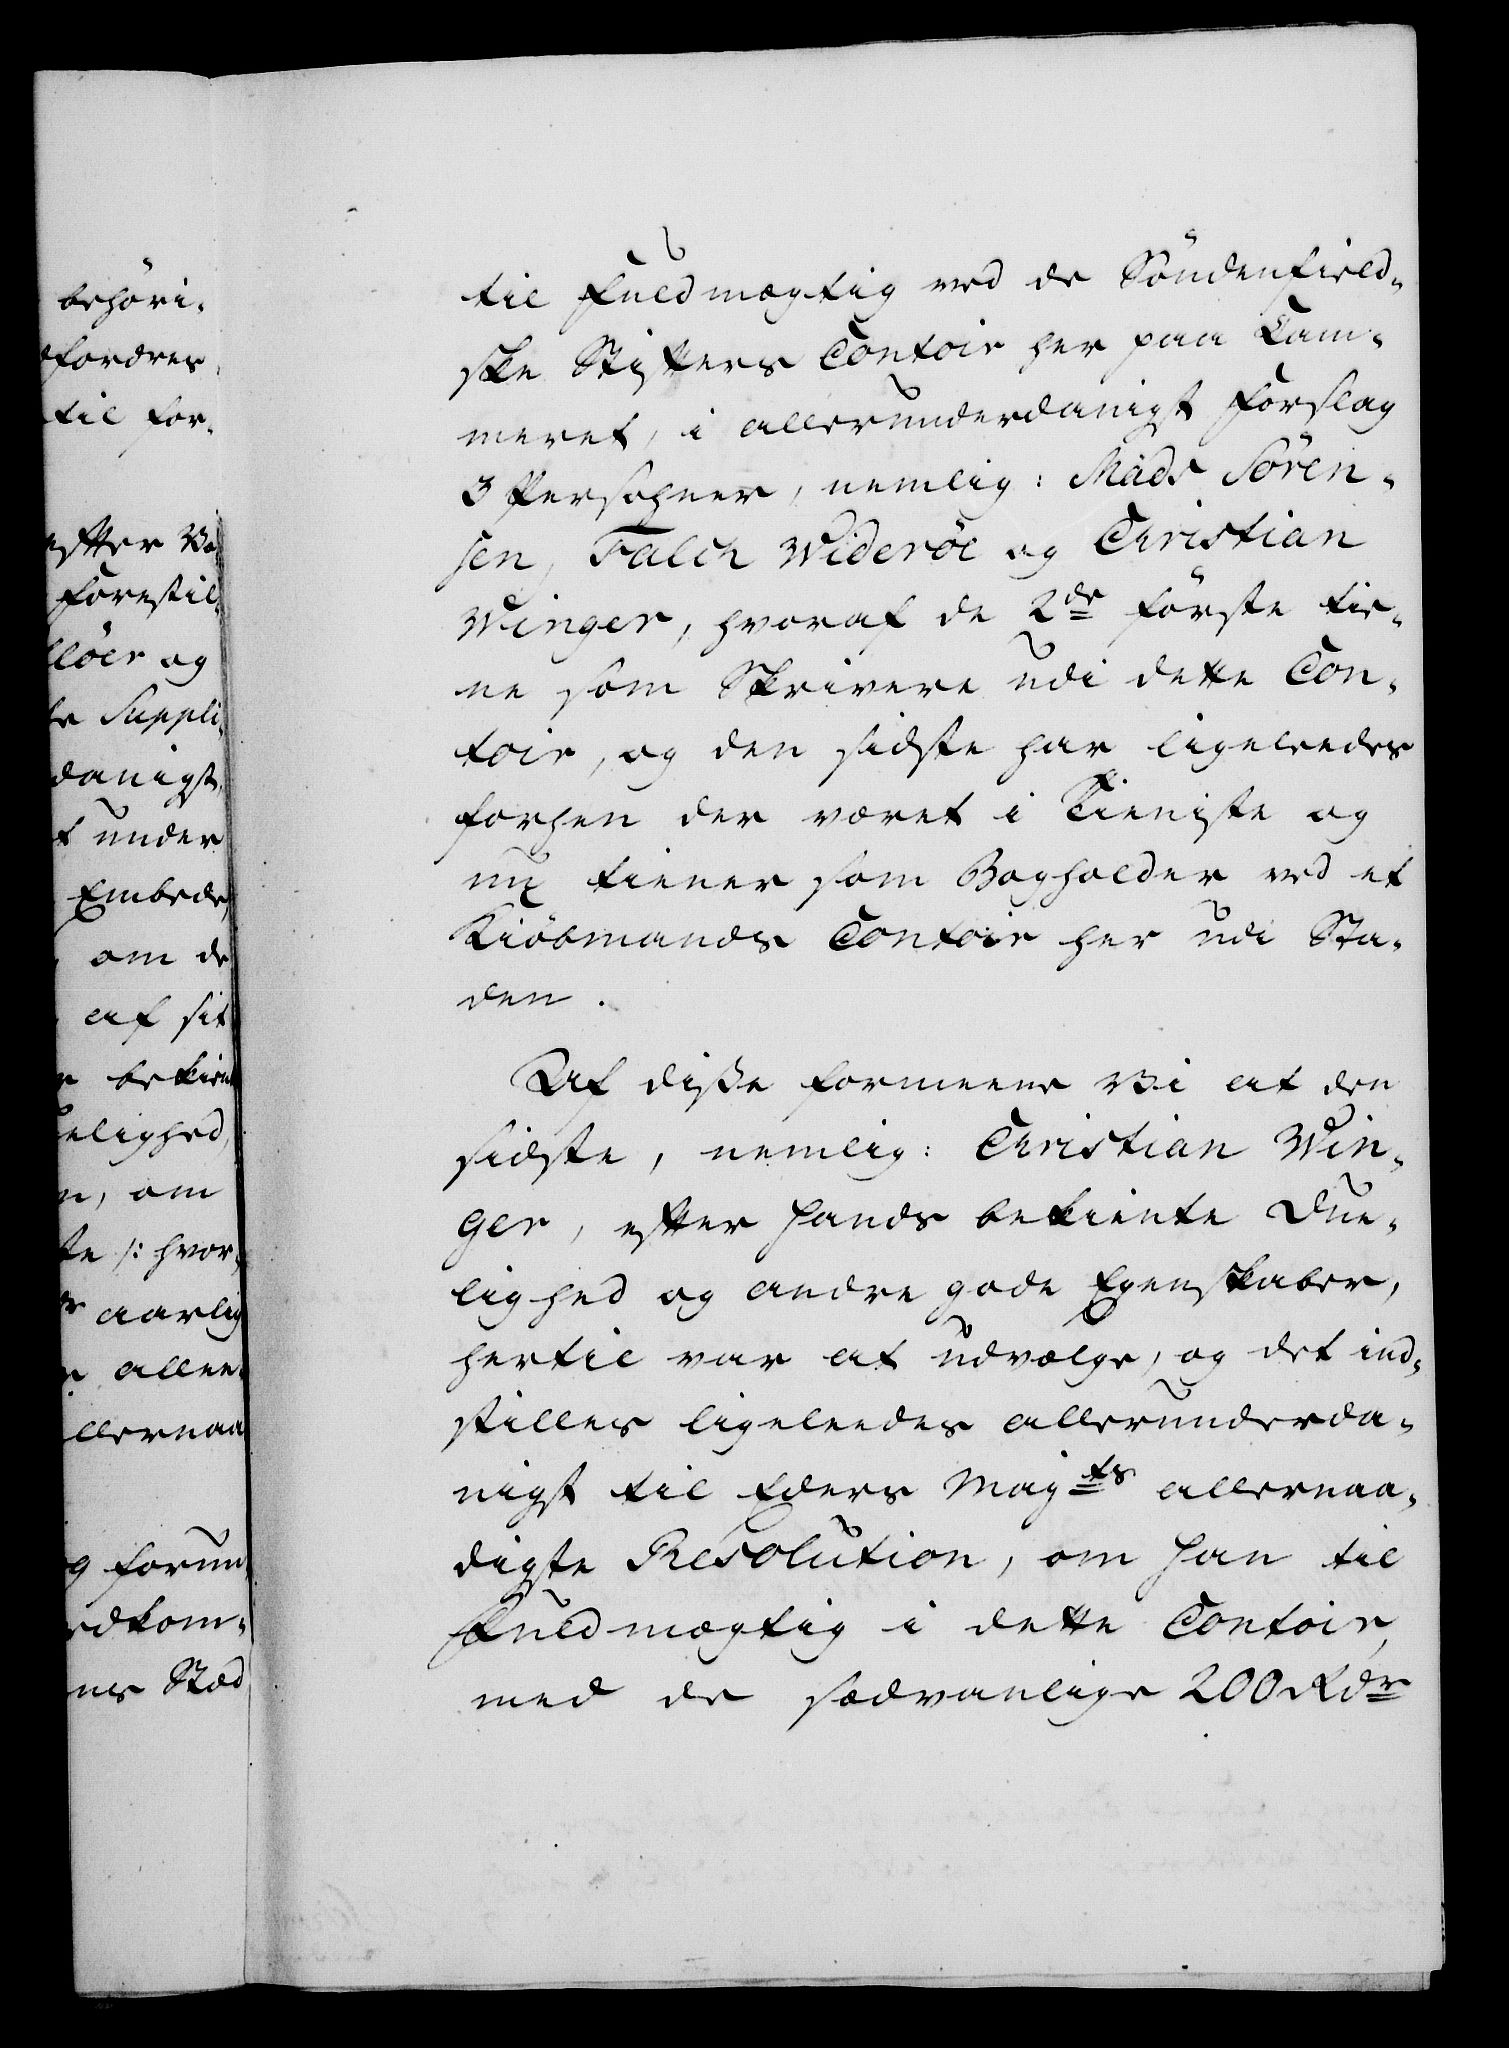 behöri-
fordres,
til for-
efter Vo
Forestil-
löer og
Suppli-
danigst,
t under
Embede,
om de
af sit
bekien
elighed,
n, om
te /: hvor-
aarlig
allen-
llernaa
g forun
edkom-
nes Stæd
til Fuldmægtig ved de Söndenfield-
ske Stifters Contoir her paa Cam-
meret, i allerunderdanigst Forslag
3 Persohner, nemlig: Mads Sören-
sen, Falch Wideröe og Christian
Winger, hvoraf de 2de förste tie-
ne som Skrivere udi dette Con-
toir, og den sidste har ligeleedes
forhen der været i Tieniste og
nu tiener som Bogholder ved et
Kiöbmands Contoir her udi Sta-
den.
Af disse formeene Vi at den
sidste, nemlig: Christian Win-
ger, efter hands bekiente Due-
lighed og andre gode Egenskaber,
hertil var at udvælge, og det ind-
stilles ligeleedes allerunderda-
nigst til Eders Majts allernaa-
digste Resolution, om han til
Fuldmægtig i dette Contoir,
med de sædvanlige 200 Rdr